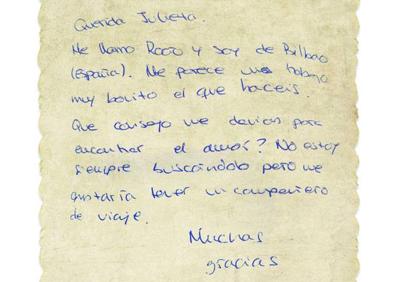 Querida Julieta.
Me llamo Rocío y soy de Bilbao
(España). Me parece un trabajo
muy bonito el que haceis.
Que consejo me dariais para
encontrar el amor? No estoy
siempre buscándolo pero me
gustaría tener un compañero
de viaje.
Muchas
gracias